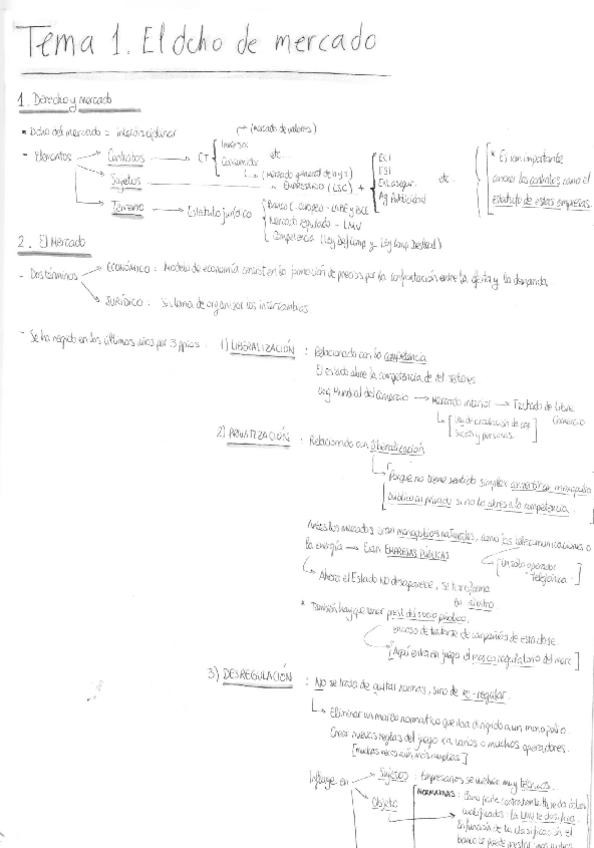 Tema 1. El dcho de mercado
1. Derecho y mercado
Dcho del mercado = interdisciplinar
(Mercado de valores)
- Elementos → Contratos → CT { Inversor
Consumidor etc.
(Mercado general de
Sujetos → Empresario (LSC) + { ECI
ESI
Ent. asegur.
Ag. Publicidad
etc.
* Es tan importante
conocer los contratos como el
estatuto de estas empresas.
Terreno → Estatuto jurídico { Banco Europeo
Mercado regulado - LMV
Competencia (Ley Def Comp y Ley Comp Desleal)
2. El Mercado
- Dos términos → ECONÓMICO: Modelo de economía consist en la formación de precios por la confrontación entre la oferta y la demanda.
JURÍDICO: Sistema de organizar los intercambios
- Se ha regido en los últimos años por 3 ppios: 1) LIBERALIZACIÓN: Relacionado con la competencia
El estado abre la competencia de sectores
Org Mundial del Comercio → Mercado interior → Tratado de Libre
Comercio
2) PRIVATIZACIÓN: Relacionado con liberalización
Porque no tiene sentido simplemente convertir un monopolio
público en privado si no lo abres a la competencia.
Antes los mercados eran monopolios naturales, como las telecomunicaciones o
la energía → Eran EMPRESAS PÚBLICAS
[Un solo operador
Telefónica.]
Ahora el Estado NO desaparece, se transforma
en
* También hay que tener prest del socio público.
de tratarse de compañías de esta clase.
[Aquí entra en juego el marco regulatorio del merc]
3) DESREGULACIÓN: No se trata de quitar normas, sino de re-regular.
Eliminar un marco normativo que iba dirigido a un monopolio.
Crear nuevas reglas del juego para varios o muchos operadores.
[muchas veces aún más complejas]
Influye en → Sujetos: Empresarios se vuelven muy técnicos.
Objeto
NORMATIVAS:
cualificados: la LMV te clasifica
En función de la clasificación el
banco te puede prestar unos u otros